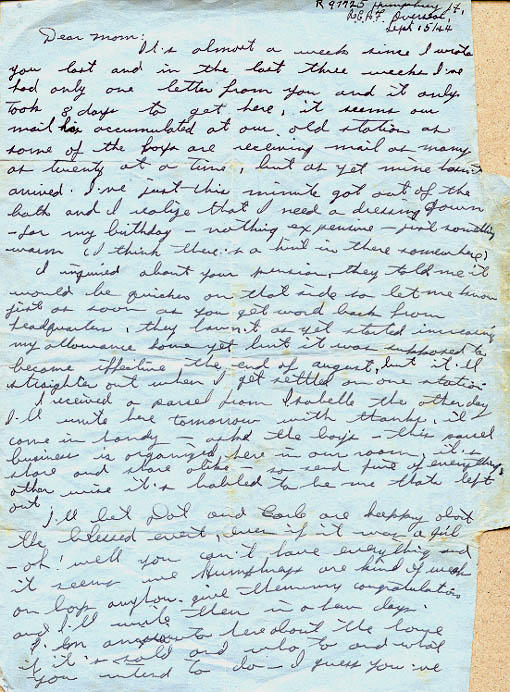 R 97725 Humphrey J.,
R.C.A.F. Overseas,
Sept 15/44
Dear Mom:
It's almost a week since I wrote
you last and in the last three weeks I've
had only one letter from you and it only
took 8 days to get here, it seems our
mail has accumulated at our old station as
some of the boys are receiving mail as many
as twenty at a time, but as yet mine hasn't
arrived. I've just this minute got out of the
bath and I realize that I need a dressing gown
- for my birthday - nothing expensive - just something
warm (I think there is a hint in there somewhere)
I inquired about your pension, they told me it
would be quicker on that side so let me know
just as soon as you get word back from
headquarters, they haven't as yet started increasing
my allowance home yet but it was supposed to
become effective the end of august, but it'll
straighter out when I get settled on one station.
I received a parcel from Isabelle the other day
I'll write here tomorrow with thanks, it'll
come in handy - asks the boys - this parcel
business is organized here in our room, it's
share and share alike - so send five of everything
other wise it's habled to be me thats left
out
I'll bet Dot and are happy obot
the blessed event, even if it was a girl
- oh! well you can't have everything and
it seems we Humphreys are kind of weak
on boys anyhow. give them my congratulations
and I'll write them in a few days.
I am to here about the
if it's sold and who to and what
you intend to do - I guess you've